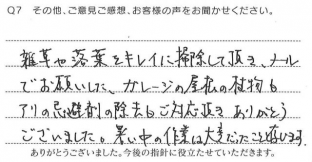 Q7 その他、ご意見ご感想、お客様の声をお聞かせください。
雑草や落葉をキレイに掃除して頂き、メール
でお願いした、ガレージの屋根の植物も
アリの忌避剤の除去もご対応頂き ありがとう
ございました。暑い中の作業は大変だったこと存じます。
ありがとうございました。今後の指針に役立たせていただきます。